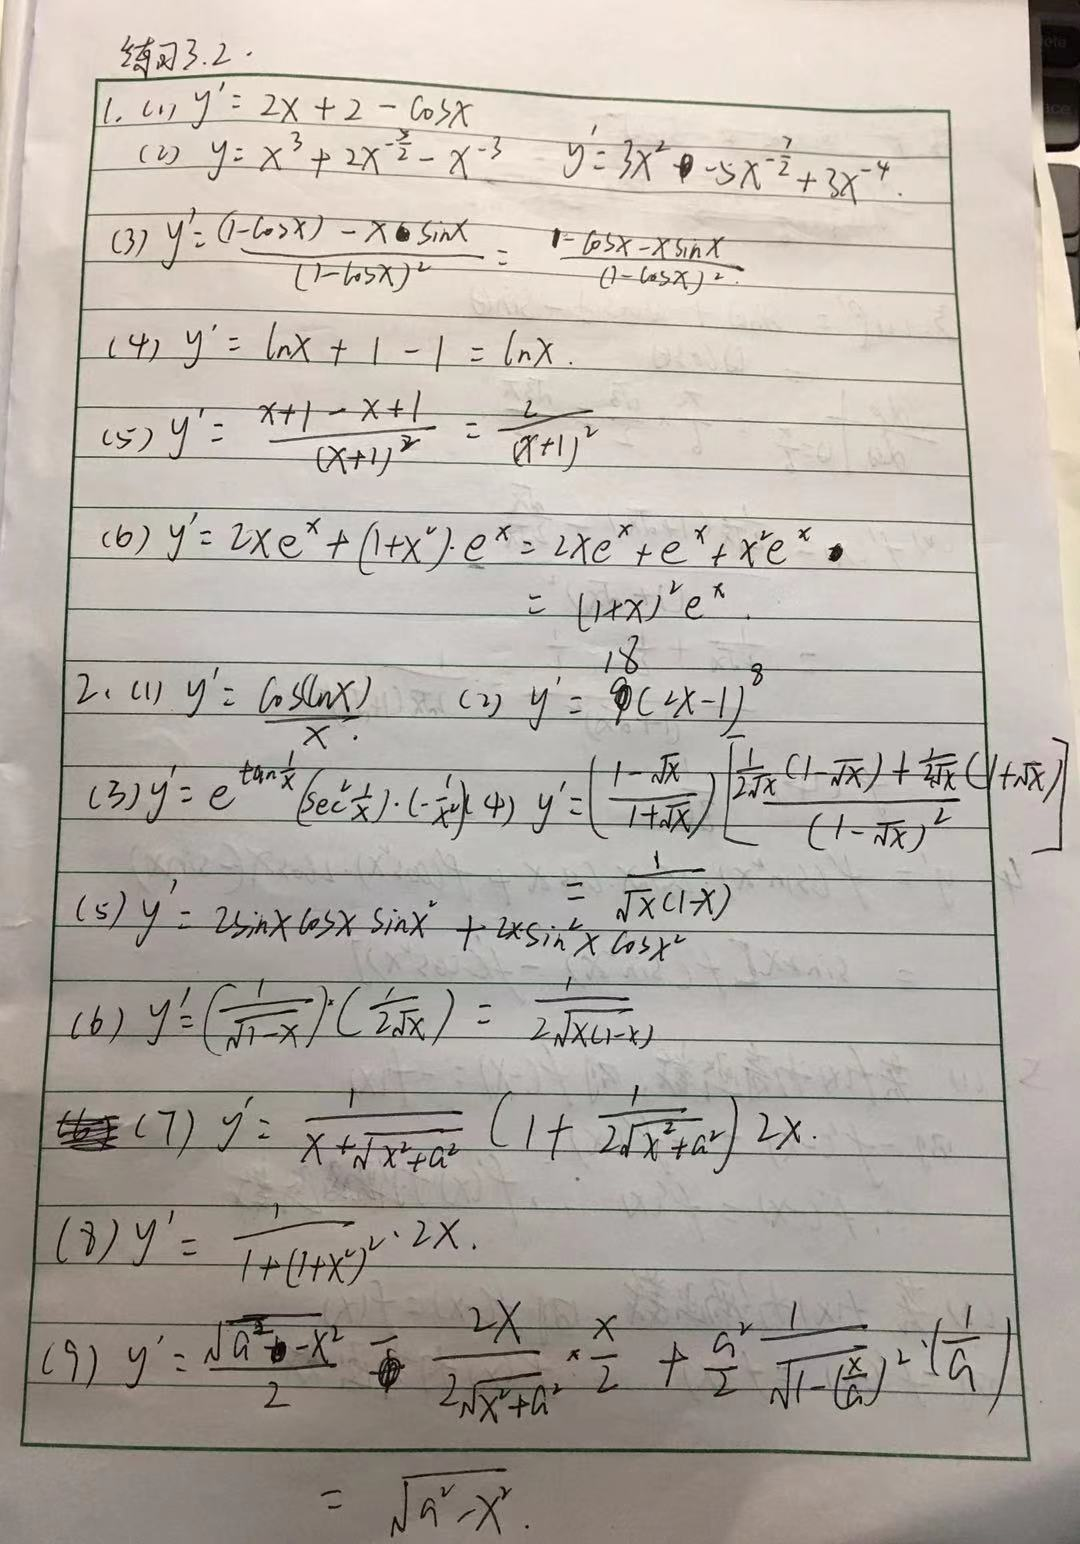 练习3.2.
1. (1) y' = 2x + 2 - cosx
(2) y = x^3 + 2x^{-5/2} - x^{-3}  y' = 3x^2 - 5x^{-7/2} + 3x^{-4}.
(3) y' = ((1-cosx) - x sinx)/(1-cosx)^2 = (1-cosx-xsinx)/(1-cosx)^2.
(4) y' = lnx + 1 - 1 = lnx.
(5) y' = (x+1-x+1)/(x+1)^2 = 2/(x+1)^2
(6) y' = 2xe^x + (1+x^2)·e^x = 2xe^x + e^x + x^2e^x
= (1+x)^2 e^x.
2. (1) y' = cos(lnx)/x.  (2) y' = 18(2x-1)^8
(3) y' = e^{tan 1/x} (sec^2 1/x)·(-1/x^2) (4) y' = ((1-√x)/(1+√x)) [(1/(2√x) (1-√x) + 1/(2√x) (1+√x))/(1-√x)^2]
= 1/(√x(1-x))
(5) y' = 2sinx cosx sinx^2 + 2xsin^2x cosx^2
(6) y' = (1/√(1-x))·(1/(2√x)) = 1/(2√(x(1-x)))
(7) y' = 1/(x+√(x^2+a^2)) (1 + 1/(2√(x^2+a^2))) 2x.
(8) y' = 1/(1+(1+x^2)^2)·2x.
(9) y' = √(a^2-x^2)/2 - 2x/(2√(x^2+a^2)) · x/2 + a^2/2 1/√(1-(x/a)^2)·(1/a)
= √(a^2-x^2).